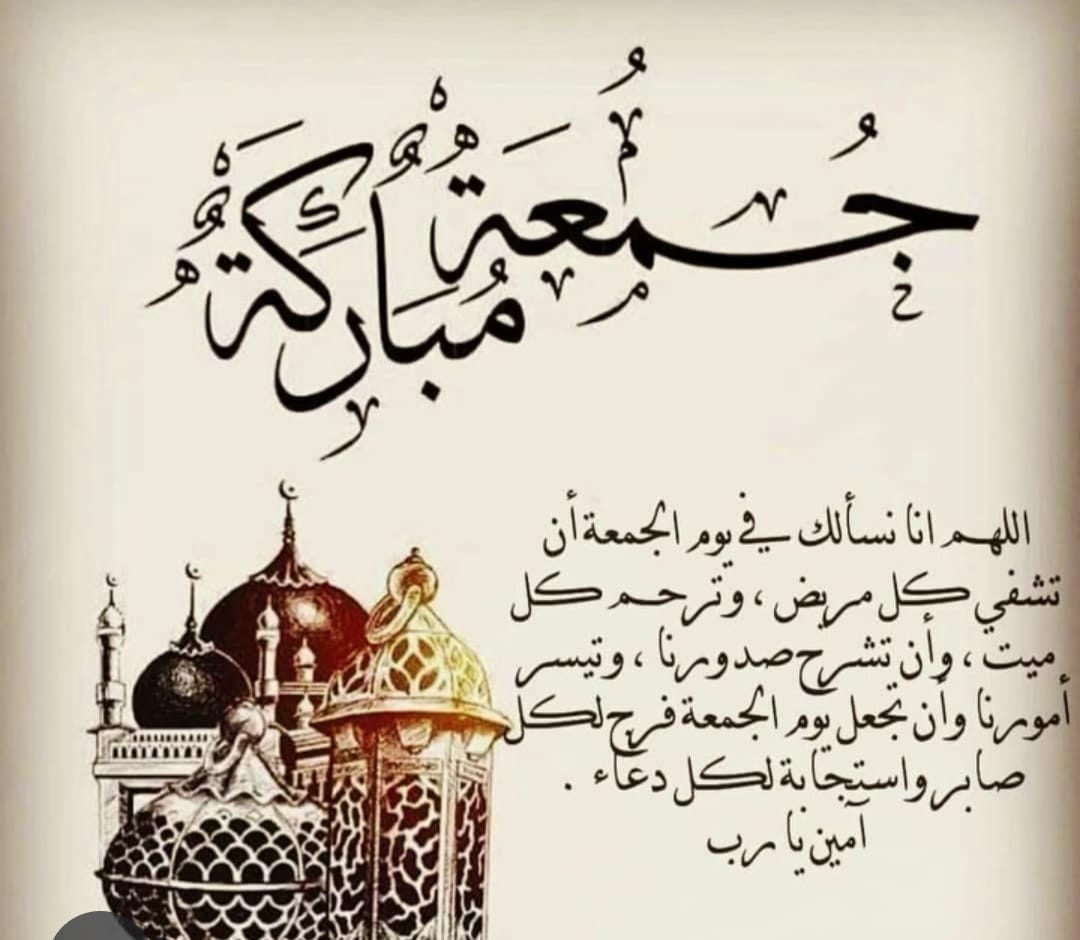 جُمُعَة
مُبَارَكَةُ
اللهم انا نسألك في يوم الجمعة أن
تشفي كل مريض ، وترحم كل
ميت ، وأن تشرح صدورنا ، وتيسر
أمورنا وأن تجعل يوم الجمعة فرج لكل
صابر واستجابة لكل دعاء .
آمين يا رب